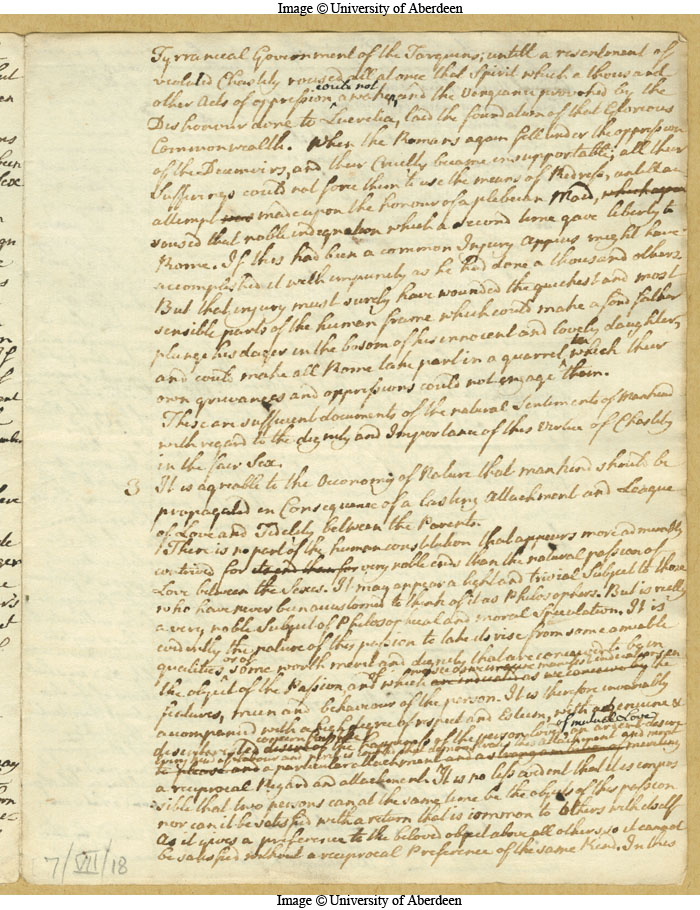 Image © University of Aberdeen
Tyrranical Government of the Tarquins; untill a resentment of
violated Chastity roused all at once that Spirit which a thousand
other Acts of oppression could not awaken, and the Vengeance provoked by the
Dishonour done to Lucretia, laid the foundation of that Glorious
Commonwealth. When the Romans again fell under the oppression
of the Decemvirs, and their Cruelty became insupportable; all their
Sufferings could not force them to use the means of Redress, untill an
attempt was made upon the honour of a plebeian Maid, which again
roused that noble indignation which a second time gave liberty to
Rome. If this had been a common Injury Appius might have
accomplished it with impunity as he had done a thousand others.
But that injury must surely have wounded the quickest and most
sensible parts of the human frame which could make a fond father
plunge his dager in the bosom of his innocent and lovely daughter,
and could make all Rome take part in a quarrel in which their
own grievances and oppressions could not engage them.
These are sufficient documents of the natural Sentiments of Mankind
with regard to the dignity and Importance of this Virtue of Chastity
in the fair Sex.
3 It is agreable to the Oeconomy of Nature that mankind should be
propagated in Consequence of a lasting Attachment and League
of Love and Fidelity between the Parents.
There is no part of the human constitution that appears more admirably
contrived for very noble ends than the natural passion of
Love between the Sexes. It may appear a light and trivial Subject to those
who have never been accustomed to think of it as Philosophers. But is really
a very noble Subject of Philosophical and moral Speculation. It is
evidently the nature of this passion to take its rise from some amiable
qualities, or of some worth merit and dignity that are conceived to be in
the object of the Passion and of which
features, mien and behaviour of the person. It is therefore invariably
accompanied with a high degree of respect and Esteem, with
of mutual Love
desire of the happiness of the person
to please and a particular attachment and
a reciprocal Regard and attachment. It is no less evident that it is impos
sible that two persons can at the same time be the objects of this passion
nor can it be satisfied with a return that is common to others with itself
As it gives a preference to the beloved object above all others, so it cannot
be satisfied without a reciprocal Preference of the same Kind. In this
7/VII/18
Image © University of Aberdeen